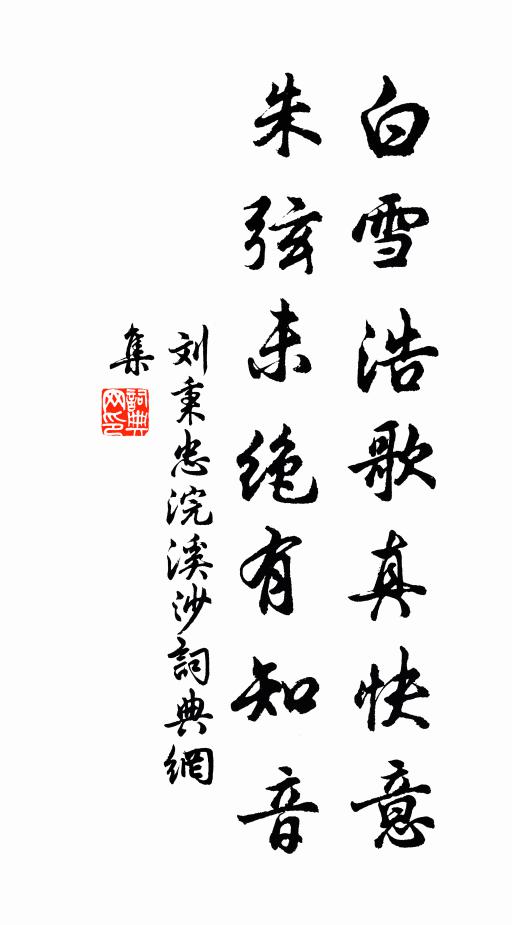 白雪浩歌真快意
朱弦未绝有知音
刘秉忠浣溪沙詞典網
集
詞典
网印